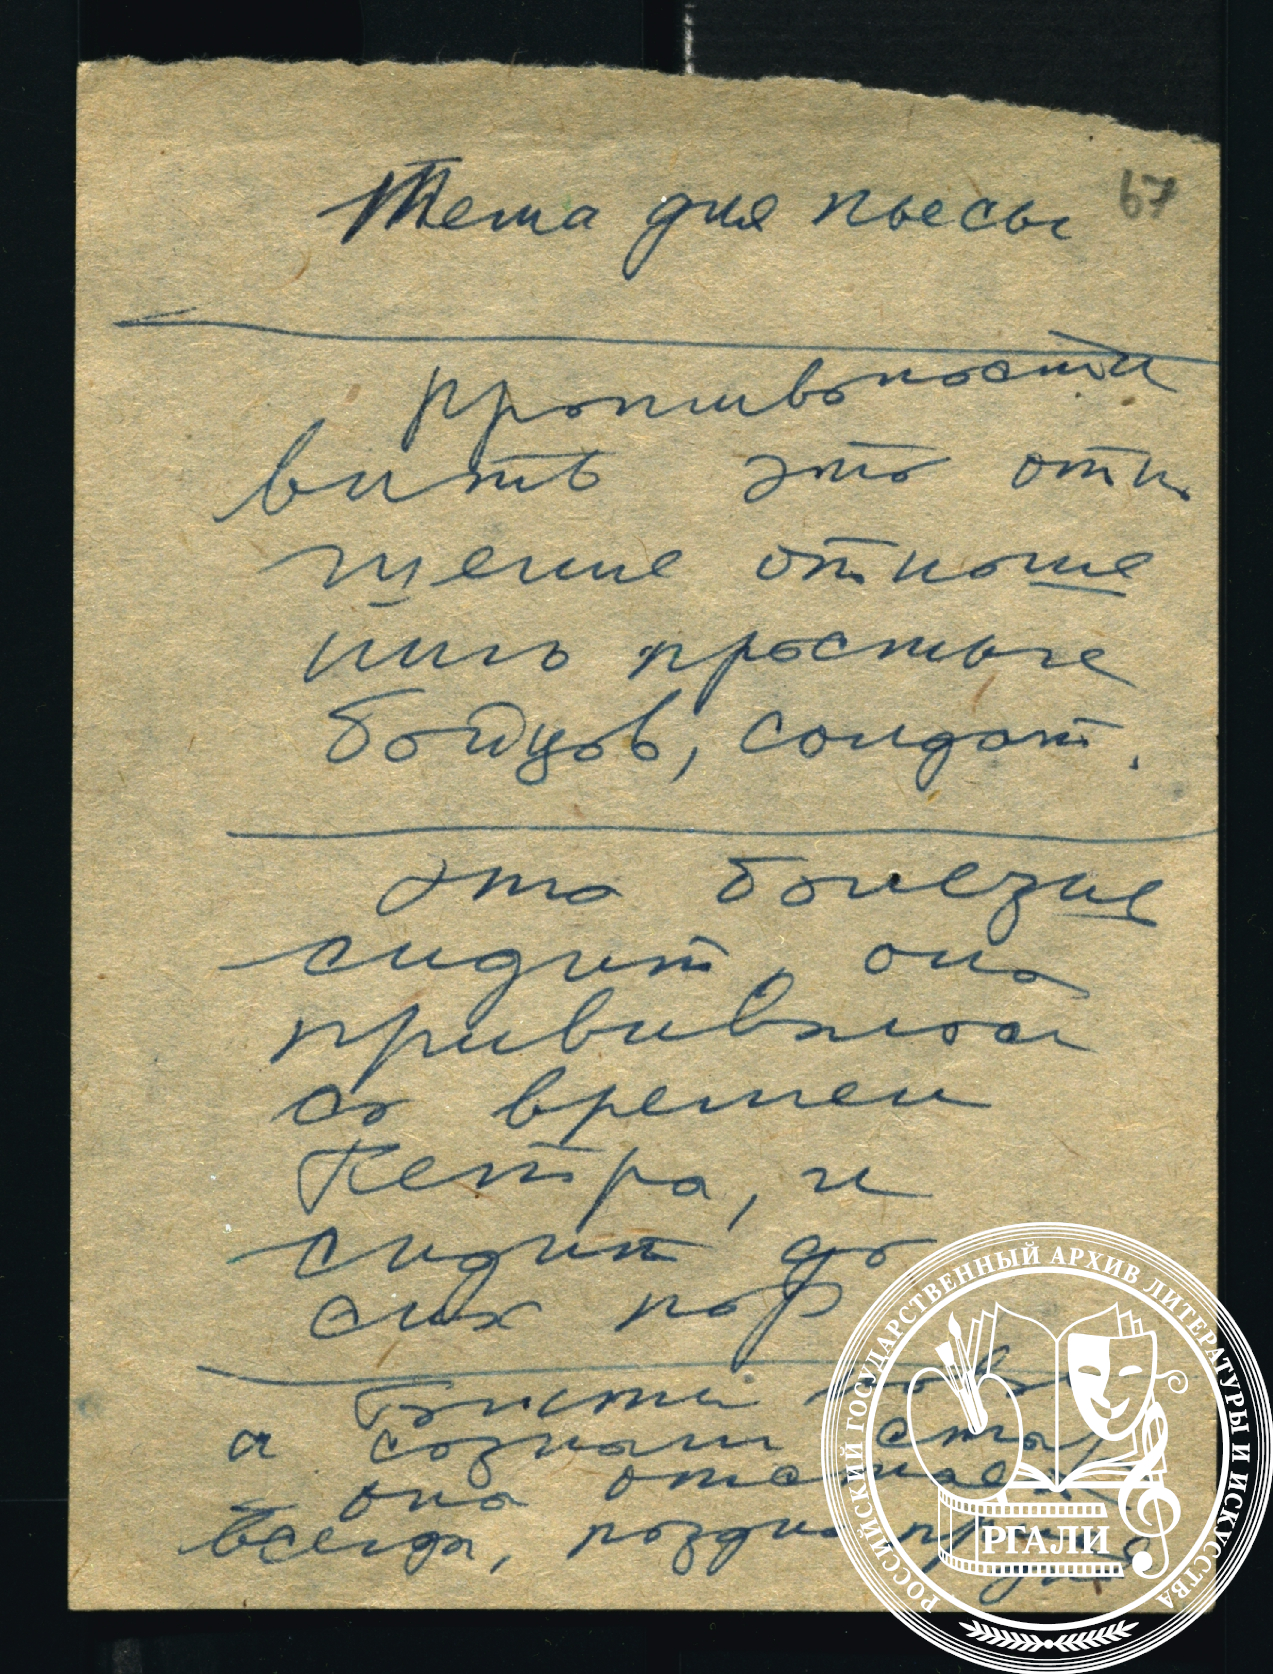 Тема для пьесы
67
Противопоста
вить это отно
шение отноше
нию простых
бойцов, солдат.
Это болезнь
сидит, она
привилась
со времен
Петра, и
сидит до
сих пор
а созна
она отстает
всегда, поздно
РОССИЙСКИЙ ГОСУДАРСТВЕННЫЙ АРХИВ ЛИТЕРАТУРЫ И ИСКУССТВА
РГАЛИ